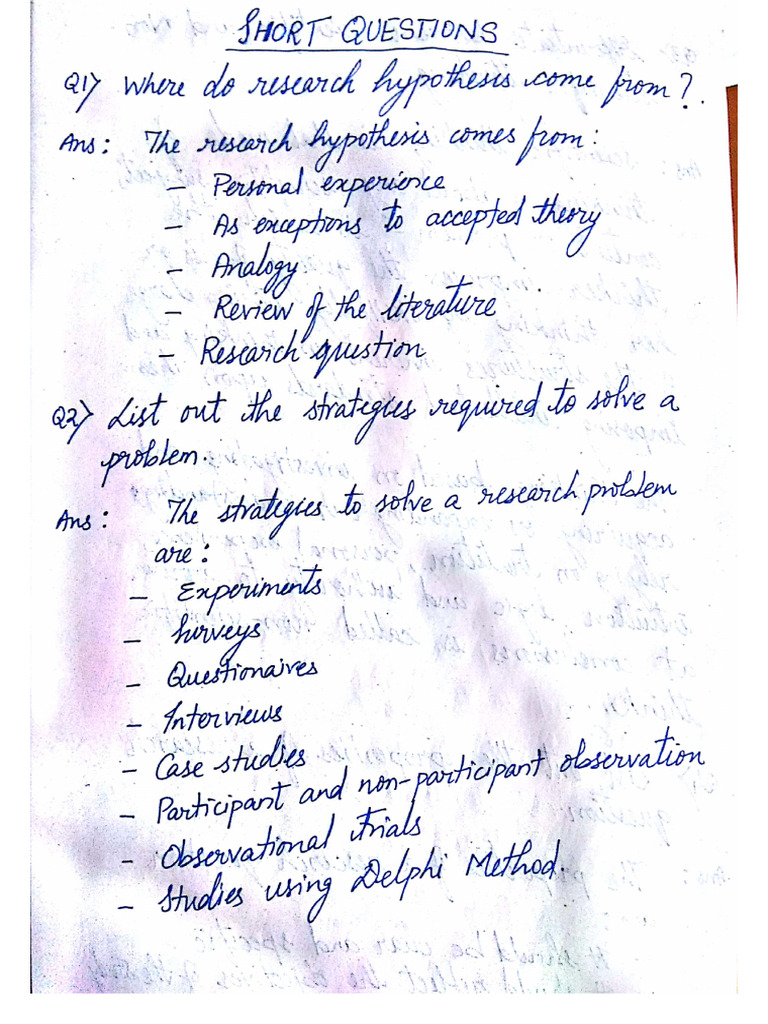 SHORT QUESTIONS
Q1) Where do research hypothesis come from?
Ans: The research hypothesis comes from:
- Personal experience
- As exceptions to accepted theory
- Analogy
- Review of the literature
- Research question
Q2) List out the strategies required to solve a
problem.
Ans: The strategies to solve a research problem
are:
- Experiments
- Surveys
- Questionaires
- Interviews
- Case studies
- Participant and non-participant observation
- Observational Trials
- Studies using Delphi Method.